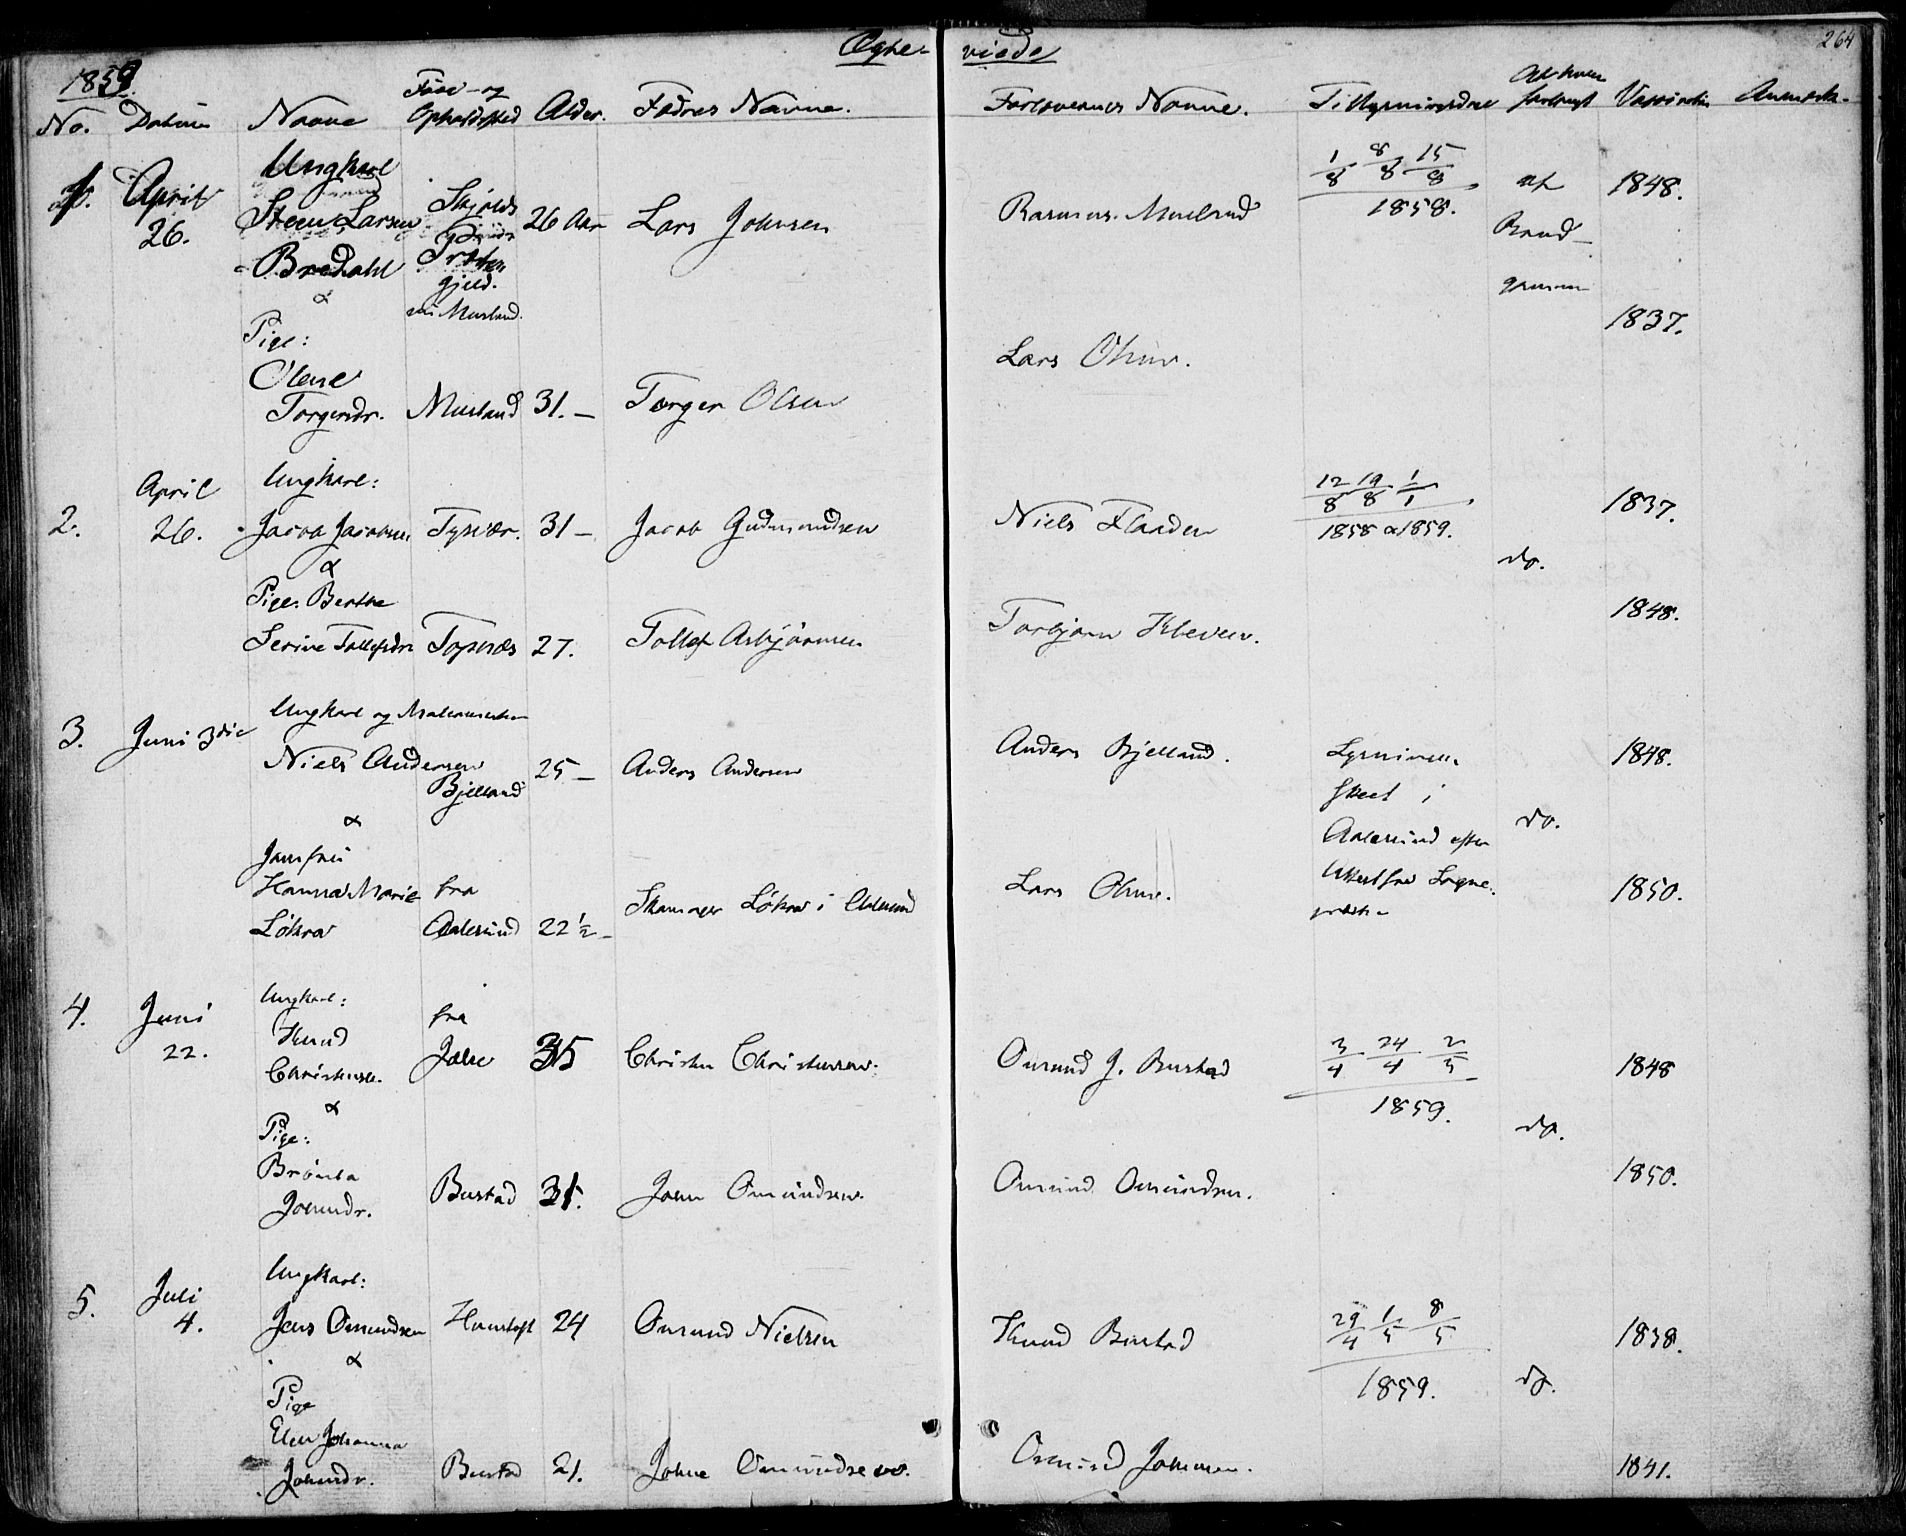 264
Ægte- viede
1859.
No. Datum Navne Føde- og Opholdssted Alder. Fædres Navne. Forlovernes Navne. Tillysningsdage Af hvem forlangt Vaccination Anmærkn.
1. April 26. Ungkarl
Steen Larsen
Bredahl
Skjolds
Præste
gjeld.
Musland.
26 Aar Lars Johnsen Rasmus Musland
1/8 8/8 15/8
1858.
af
Brud-
gommen
1848.
&
Pige:
Olene
Torgersdr. Musland 31. — Torger Olsen Lars Olsen. 1837.
2. April
26.
Ungkarl:
Jacob Jacobsen Tysvær. 31 — Jacob Gudmundsen Niels Flaaden
12/8 19/8 1/1
1858 & 1859.
do.
1837.
&
Pige: Berthe
Serine Tollefsdr. Topnæs 27. Tollef Asbjørnsen Torbjørn Kleven. 1848.
3. Juni 3die
Ungkarl og
Niels Andersen
Bjelland 25 — Anders Andersen Anders Bjelland.
Lysningen
skeet i
Aalesund efter
Sogne-
præsten
do.
1848.
&
Jomfru
Hanna Marie
Løkra
fra
Aalesund 22 ½ — Løkra i Aalesund Lars Olsen. 1850.
4. Juni
22.
Ungkarl:
Knud
Christensen.
fra
Jælse 35 Christen Christensen. Omund J. Bustad
3/4 24/4 2/5
1859.
do.
1848
&
Pige:
Brønla
Johnsdr. Bustad 31. John Omundsen. Omund Omundsen. 1850.
5. Juli
4.
Ungkarl:
Jens Omundsen 24 Omund Nielsen Knud Bustad
29/4 1/5 8/5
1859.
do.
1838.
&
Pige
Elen Johanna
Johnsdr. Bustad 21. Johne Omundsen. Omund Johnsen. 1841.